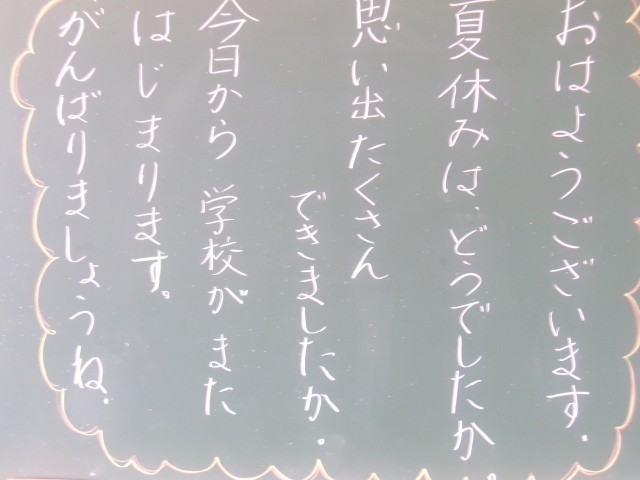 おはようございます.
夏休みは、どうでしたか。
思い出たくさん
できましたか.
今日から 学校が また
はじまります。
がんばりましょうね.